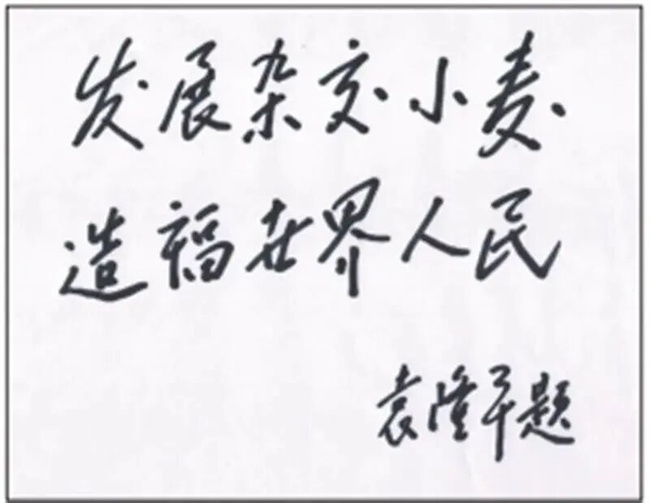 发展杂交小麦
造福世界人民
袁隆平题